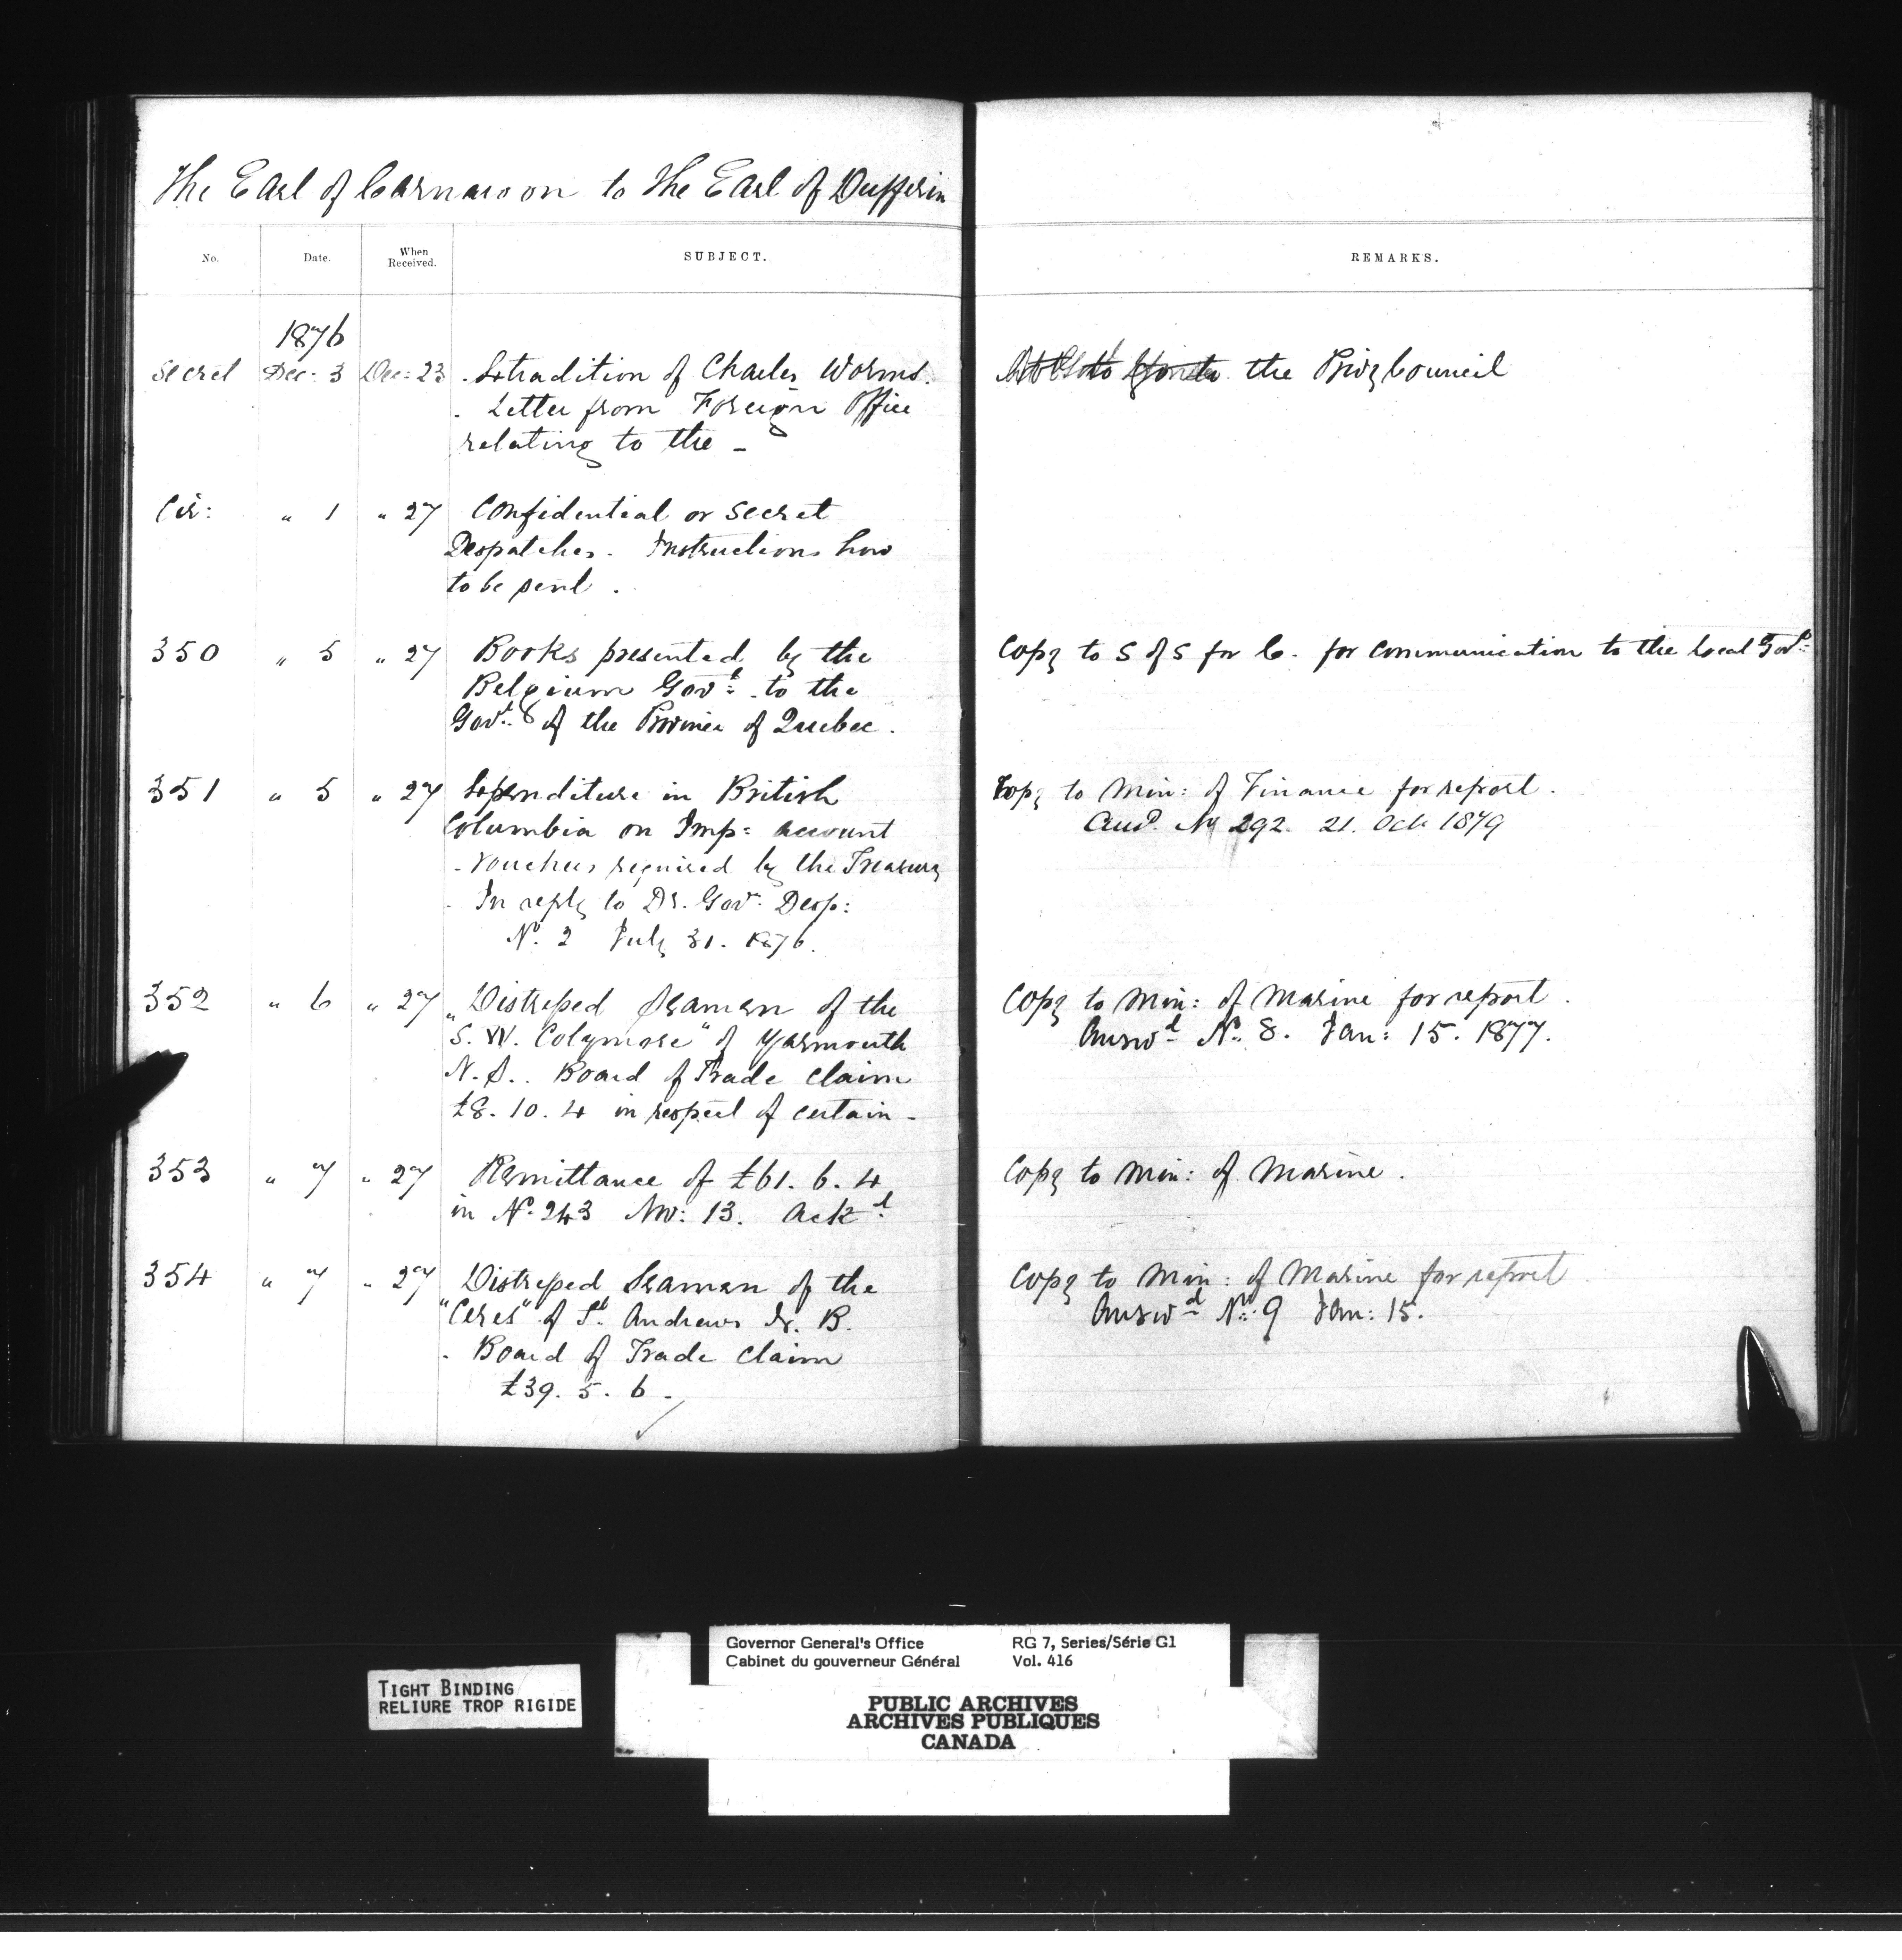 The Earl of Carnarvon to The Earl of Dufferin
No. Date. When Received. SUBJECT. REMARKS.
1876
Secret Dec: 3 Dec: 23 . Extradition of Charles Worms. the Privy Council
. Letter from Foreign Office
relating to the -
Cir: " 1 " 27 Confidential or Secret
Despatches. Instructions how
to be sent .
350 " 5 " 27 Books presented by the Copy to S of S for C. for communication to the local Govt:
Belgium Govt: to the
Govt: of the Province of Quebec.
351 " 5 " 27 Expenditure in British Copy to Min: of Finance for report.
Columbia on Imp: account Ansd. No 292. 21. Oct 1879
- Vouchers required by the Treasury
- In reply to Dr. Gov: Desp:
No. 2 July 31. 1876.
352 " 6 " 27 Distressed Seamen of the Copy to Min: of Marine for report.
"S. W. Colymore" of Yarmouth Answd No. 8. Jan: 15. 1877.
N.S.. Board of Trade claim
£8. 10. 4 in respect of certain -
353 " 7 " 27 Remittance of £61. 6. 4 Copy to Min: of Marine.
in No. 243 Nov: 13. Ackd:
354 " 7 " 27 Distressed Seamen of the Copy to Min: of Marine for report
"Ceres" of St. Andrews N. B. Answd No: 9 Jan: 15.
- Board of Trade claim
£39. 5. 6 -
Governor General's Office RG 7, Series/Série G1
Cabinet du gouverneur Général Vol. 416
TIGHT BINDING
RELIURE TROP RIGIDE
PUBLIC ARCHIVES
ARCHIVES PUBLIQUES
CANADA